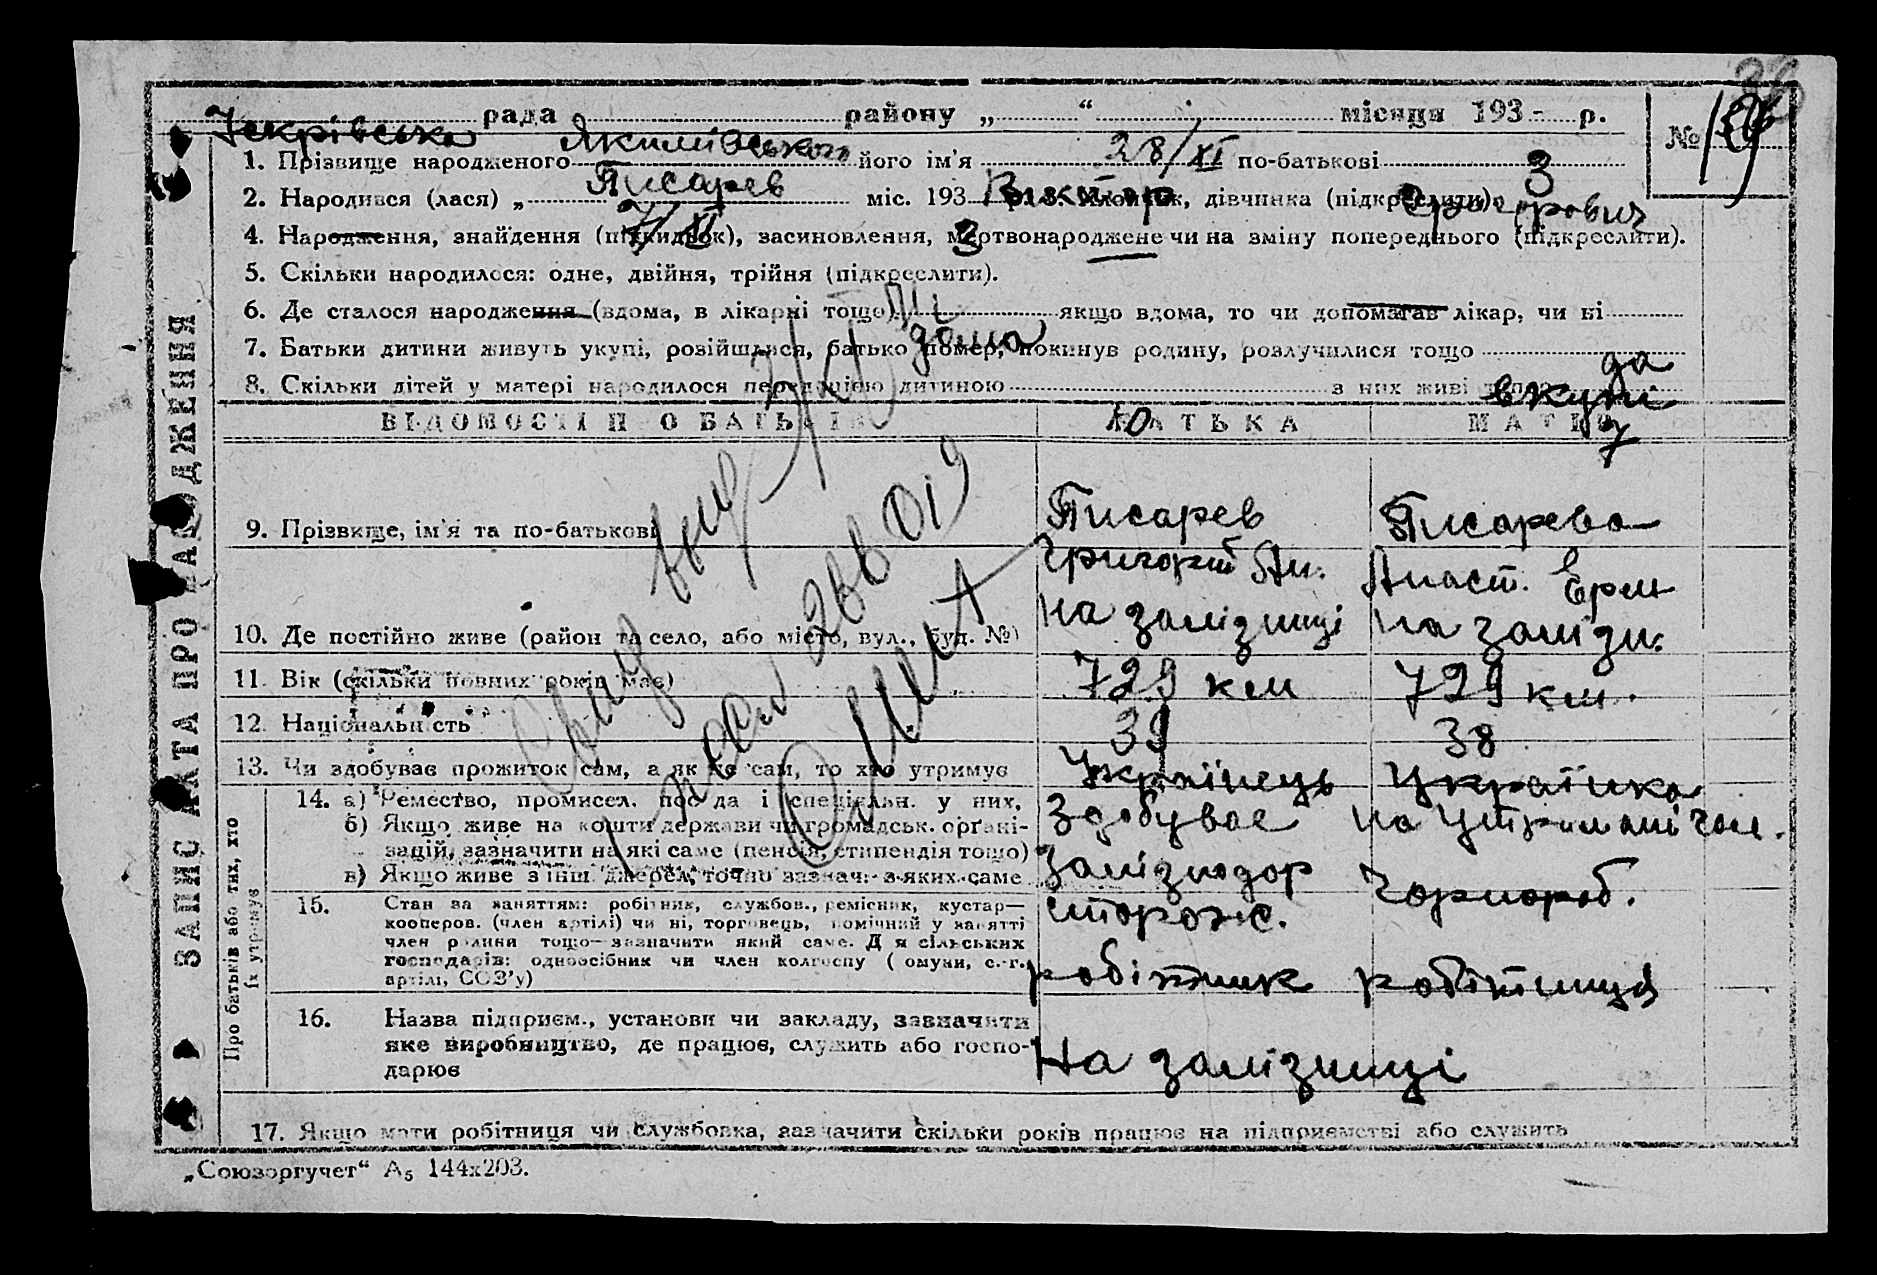 Іскрівська рада Якимівського району „ “ 28/XI місяця 193 3 р.
№ 
1. Прізвище народженого Писарев його ім'я Віктор по-батькові Григорович
2. Народився (лася) „ 7/XI міс. 193 3 р. 3. Хлопчик, дівчинка (підкреслити).
4. Народження, знайдення (підкидьок), засиновлення, мертвонароджене чи на зміну попереднього (підкреслити).
5. Скільки народилося: одне, двійня, трійня (підкреслити).
6. Де сталося народження (вдома, в лікарні тощо) дома якщо вдома, то чи допомагав лікар, чи ні да
7. Батьки дитини живуть укупі, розійшлися, батько помер, покинув родину, розлучилися тощо вкупі
8. Скільки дітей у матері народилося перед цією дитиною 10 з них живі тепер 7
ВІДОМОСТІ ПРО БАТЬКІВ БАТЬКА МАТИ
9. Прізвище, ім'я та по-батькові Писарев Писарева
Григорій Ан. Анаст. Ерм
10. Де постійно живе (район та село, або місто, вул., буд. №) на залізниці на залізн.
729 км 729 км.
11. Вік (скільки повних років має) 39 38
12. Національність Українець Українка
13. Чи здобуває прожиток сам, а як не сам, то хто утримує Здобуває на утриманні чол.
14. а) Ремество, промисел. посада і спеціяльн. у них, Залізнодор Чорнороб.
б) Якщо живе на кошти держави чи громадськ. органі- сторож.
зацій, зазначити на які саме (пенсія, стипендія тощо)
в) Якщо живе з інш. джерел, точно зазнач. з яких саме
15. Стан за заняттям: робітник, службов., ремісник, кустар— робітник робітниця
кооперов. (член артілі) чи ні, торговець, помічний у занятті
член родини тощо—зазначити який саме. Для сільських
господарів: одноосібник чи член колгоспу (комуни, с.-г.
артілі, СОЗ'у)
16. Назва підприєм., установи чи закладу, зазначити На залізниці
яке виробництво, де працює, служить або госпо-
дарює
17. Якщо мати робітниця чи службовка, зазначити скільки років працює на підприємстві або служить
„Союзоргучет“ А5 144х203.
ЗАПИС АКТА ПРО НАРОДЖЕННЯ
Про батьків або тих, хто
їх утримує